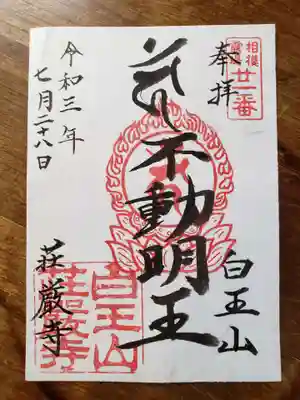 奉拝
廿一番
不動明王
白王山
荘厳寺
令和三年
七月二十八日
白王山